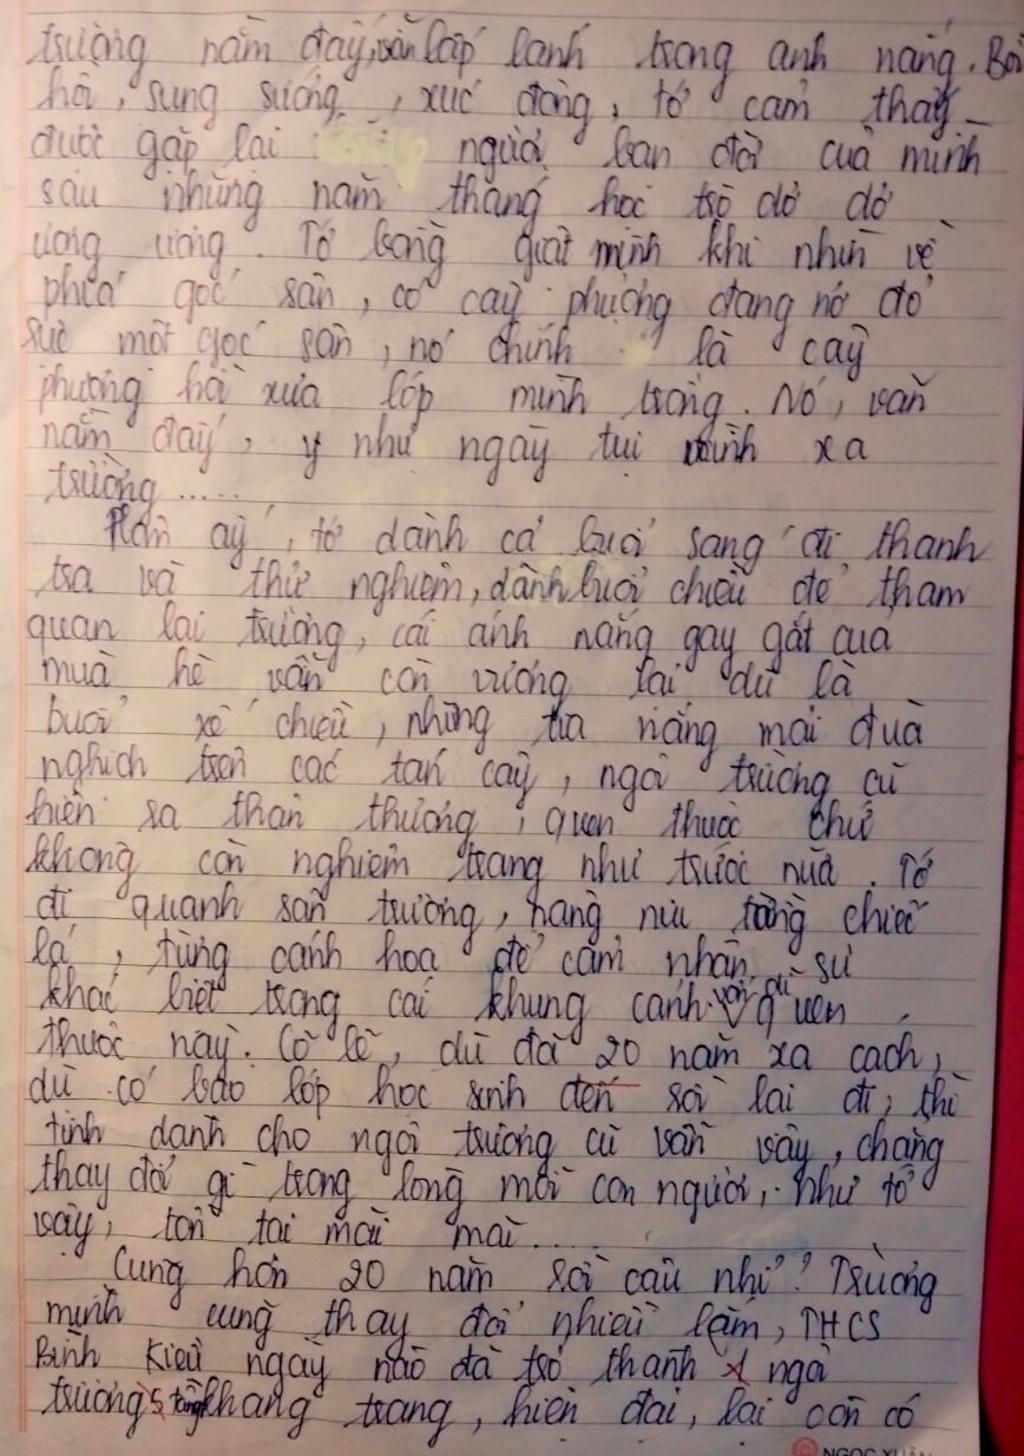 trường nằm đấy, vẫn lấp lánh trong ánh nắng. Bồi
hồi, sung sướng, xúc động, tớ cảm thấy
được gặp lại người bạn đời của mình
sau những năm tháng học trò dở dở
ương ương. Tớ bỗng giật mình khi nhìn về
phía góc sân, có cây phượng đang nở đỏ
rực một góc sân, nó chính là cây
phượng hồi xưa lớp mình trồng. Nó, vẫn
nằm đấy, y như ngày tụi mình xa
trường.....
Hôm ấy, tớ dành cả buổi sáng đi thanh
tra và thử nghiệm, dành buổi chiều để tham
quan lại trường, cái ánh nắng gay gắt của
mùa hè vẫn còn vương lại dù là
buổi xế chiều, những tia nắng mải đùa
nghịch trên các tán cây, ngôi trường cũ
hiện ra thân thương, quen thuộc chứ
không còn nghiêm trang như trước nữa. Tớ
đi quanh sân trường, nâng niu từng chiếc
lá, từng cánh hoa để cảm nhận sự
khác biệt trong cái khung cảnh vốn dĩ quen
thuộc này. Có lẽ, dù đã 20 năm xa cách,
dù có bao lớp học sinh đến rồi lại đi, thì
tình dành cho ngôi trường cũ vẫn vậy, chẳng
thay đổi gì trong lòng mỗi con người, như tớ
vậy, tồn tại mãi mãi....
Cũng hơn 20 năm rồi cậu nhỉ? Trường
mình cũng thay đổi nhiều lắm, THCS
Bình Kiều ngày nào đã trở thành 1 ngôi
trường 5 tầng khang trang, hiện đại, lại còn có
NGOC XUÂN